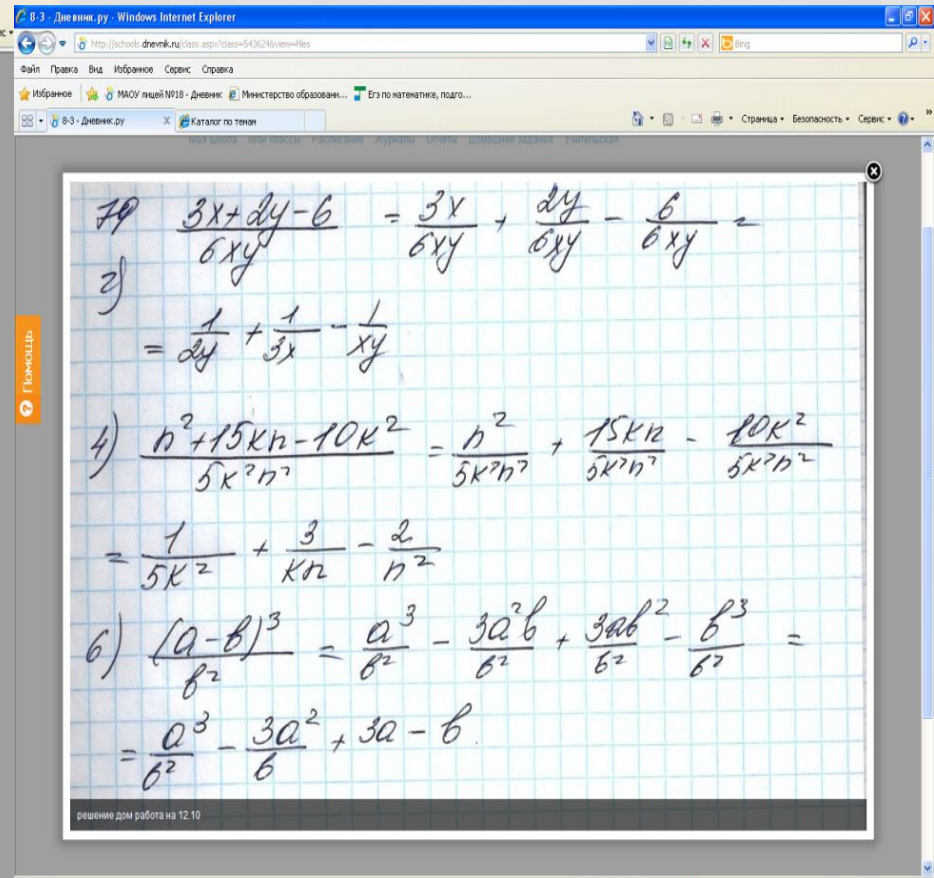 8-3 - Дневник.ру - Windows Internet Explorer
http://schools.dnevnik.ru/class.aspx?class=543624&view=files
Bing
Файл Правка Вид Избранное Сервис Справка
Избранное МАОУ лицей №18 - Дневник Министерство образовани... Егэ по математике, подго...
8-3 - Дневник.ру X Каталог по темам Страница Безопасность Сервис »
Моя школа Мои классы Расписание Журналы Отчеты Домашние задания Учительская
Помощь
79 (3x+2y-6)/(6xy) = 3x/(6xy) + 2y/(6xy) - 6/(6xy) =
2)
= 1/(2y) + 1/(3x) - 1/(xy)
4) (n²+15kn-10k²)/(5k²n²) = n²/(5k²n²) + 15kn/(5k²n²) - 10k²/(5k²n²)
= 1/(5k²) + 3/(kn) - 2/n²
6) (a-b)³/b² = a³/b² - 3a²b/b² + 3ab²/b² - b³/b² =
= a³/b² - 3a²/b + 3a - b.
решение дом работа на 12.10